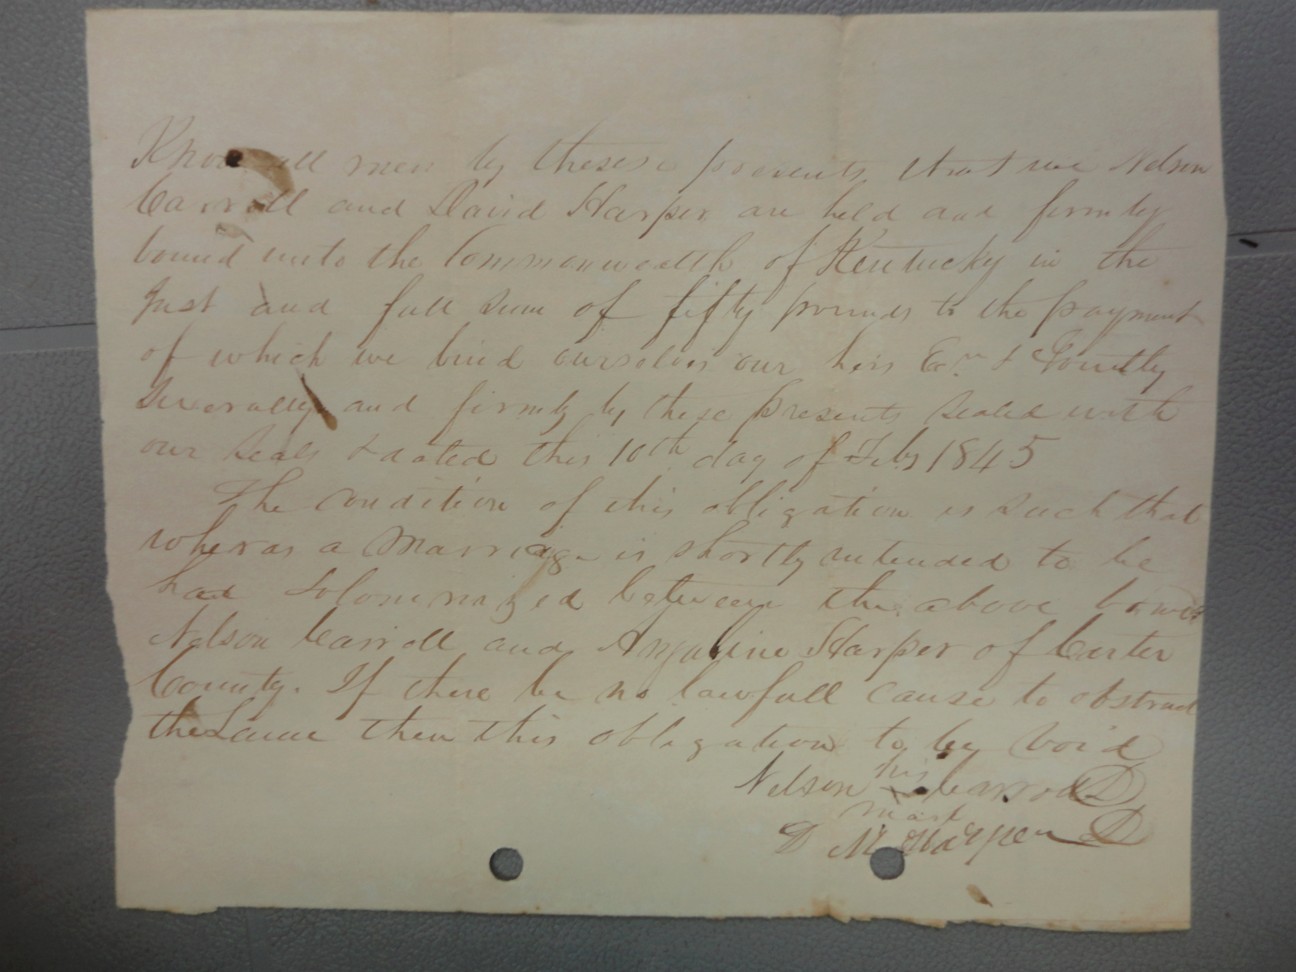 Know all men by theses presents that we Nelson
Carroll and David Harper are held and firmly
bound unto the Commonwealth of Kentucky in the
Just and full sum of fifty pounds to the payment
of which we bind ourselves our heirs Exrs & Jointly
Severally and firmly by these presents Sealed with
our Seals & dated this 10th day of Feby 1845
The condition of this obligation is Such that
wheras a Marriage is shortly intended to be
had Solommized between the above bound
Nelson Carroll and Anjaline Harper of Carter
County. If there be no lawfull cause to obstruct
the Same then this obligation to be void
Nelson his Carroll
mark
D M Harper